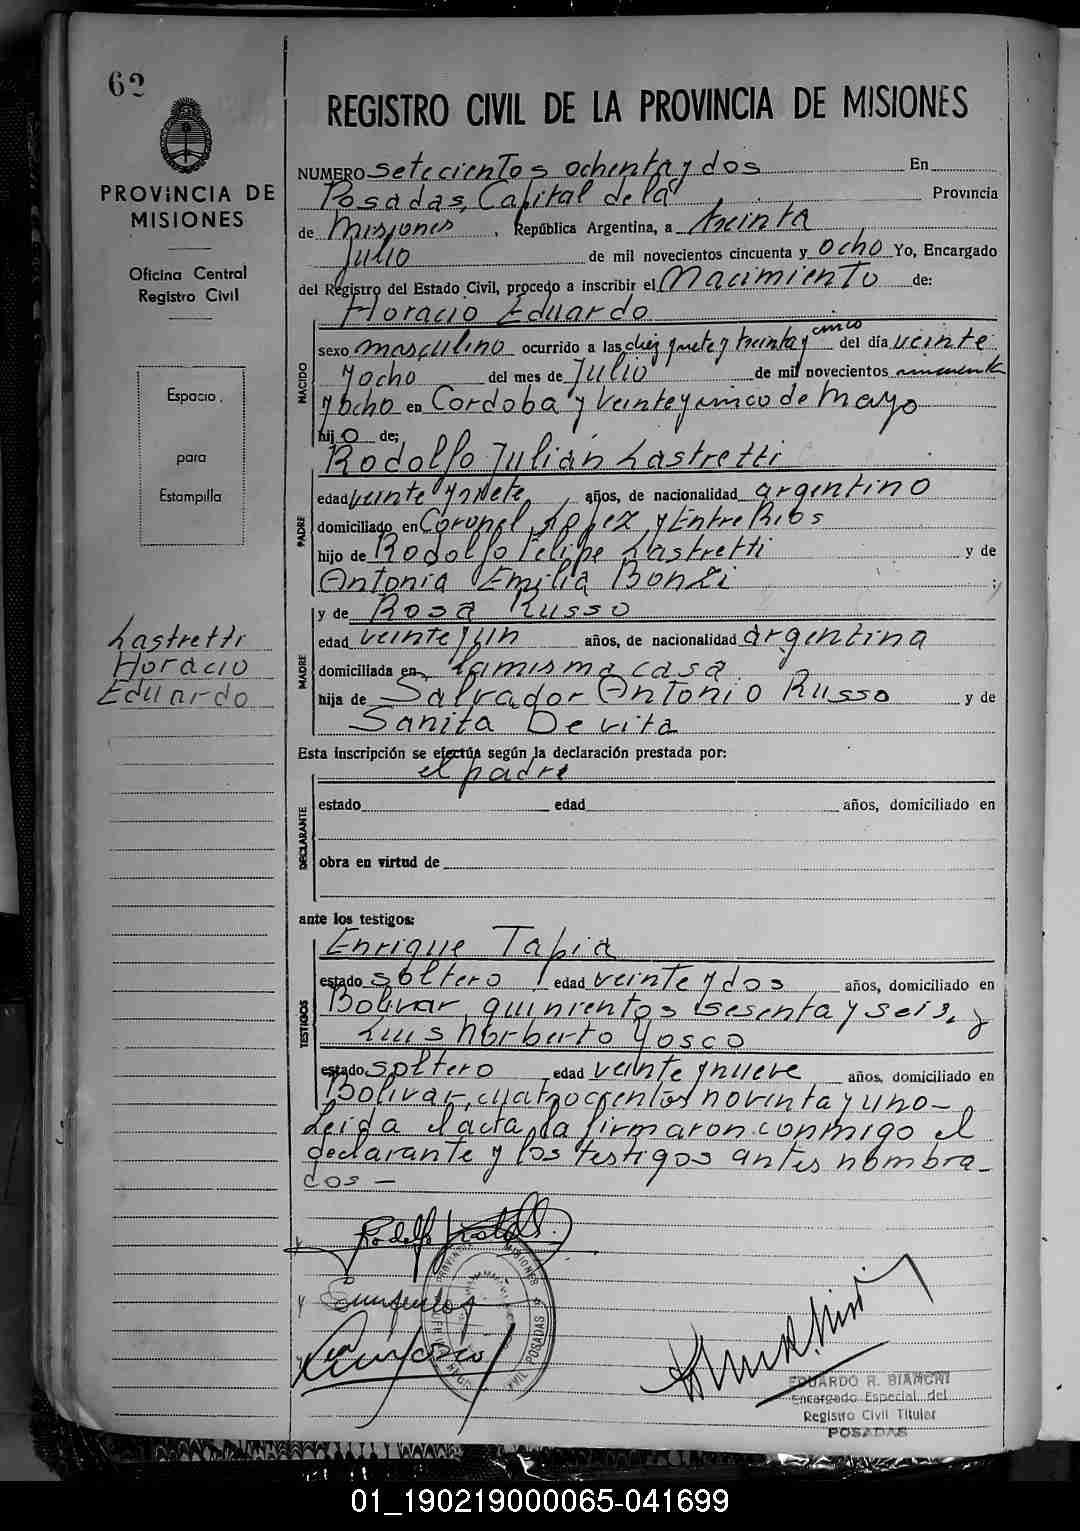 62
REGISTRO CIVIL DE LA PROVINCIA DE MISIONES
PROVINCIA DE
MISIONES
Oficina Central
Registro Civil
Espacio
para
Estampilla
Lastretti
Horacio
Eduardo
NUMERO setecientos ochenta y dos En
Posadas, Capital de la Provincia
de Misiones, República Argentina, a treinta
Julio de mil novecientos cincuenta y ocho Yo, Encargado
del Registro del Estado Civil, procedo a inscribir el Nacimiento de:
Horacio Eduardo
NACIDO
sexo masculino ocurrido a las diez y siete y treinta y cinco del día veinte
y ocho del mes de Julio de mil novecientos cincuenta
y ocho en Cordoba y veinte y cinco de Mayo
hijo de;
Rodolfo Julián Lastretti
PADRE
edad veinte y siete años, de nacionalidad argentino
domiciliado en Coronel López y Entre Rios
hijo de Rodolfo Felipe Lastretti y de
Antonia Emilia Bonzi
y de Rosa Russo
MADRE
edad veinte y un años, de nacionalidad argentina
domiciliada en la misma casa
hija de Salvador Antonio Russo y de
Sanita De vita
Esta inscripción se efectúa según la declaración prestada por:
el padre
DECLARANTE
estado edad años, domiciliado en
obra en virtud de
ante los testigos:
TESTIGOS
Enrique Tapia
estado soltero edad veinte y dos años, domiciliado en
Bolivar, quinientos sesenta y seis, y
Luis Norberto Yosco
estado soltero edad veinte y nueve años, domiciliado en
Bolivar, cuatrocientos noventa y uno-
Leida el acta, la firmaron conmigo el
declarante y los testigos antes nombra-
dos -
EDUARDO R. BIANCHI
Encargado Especial del
Registro Civil Titular
POSADAS
01_190219000065-041699